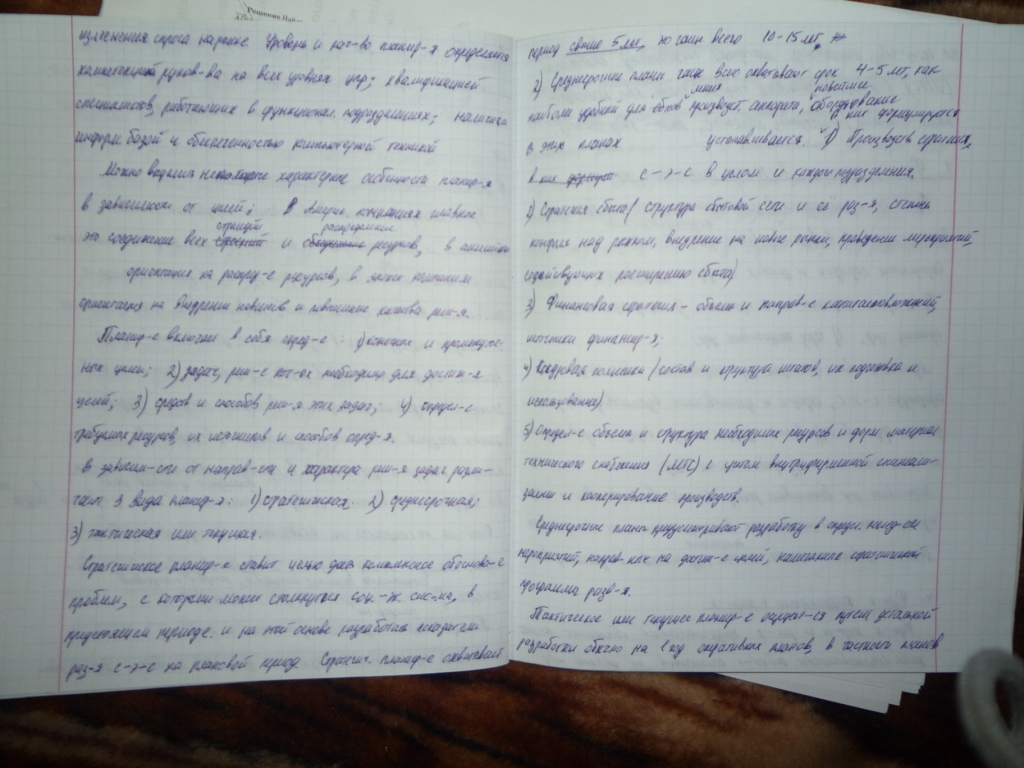 Решение
изменения спроса на рынке. Уровень и кол-во планир-я определяется
компетенцией руков-ва на всех уровнях упр; квалификацией
специалистов, работающих в функционал. подразделениях; наличием
информ. базой и обеспеченностью компьютерной техникой
Можно выделить некоторые характерные особенности планир-я
в зависимости от целей; В Америк. компаниях главное
стратегий распределение
это соединение всех и ресурсов, в английских
ориентация на распред-е ресурсов, в японских
ориентация на внедрение новшеств и повышение качества реш-я.
Планир-е включает в себя опред-е: 1) конечных и промежуточ-
ных целей; 2) задач, реш-е кот-ых необходимо для достиж-я
целей; 3) средств и способов реш-я этих задач; 4) опредл-е
требуемых ресурсов, их источников и способов опред-я.
В зависим-сти от направ-сти и характера реш-я задач разли-
чают 3 вида планир-я: 1) стратегическая 2) среднесрочная;
3) тактическая или текущая.
Стратегическое планир-е ставит целью дать комплексное обоснова-е
проблем, с которыми может столкнуться соц.-эк. сис-ма, в
предстоящем периоде и на этой основе разработать показатели
раз-я с-э-с на плановой период. Стратегич. планир-е охватывает
период свыше 5 лет, но чаще всего 10-15 лет.
2) Среднесрочные планы чаще всего охватывают срок 4-5 лет, как
наиболее удобный для обнов производст. аппарата, оборудование
ления
в этих планах устанавливается 1) Производств. стратегия,
в них с-э-с в целом и каждого подразделения.
2) Стратегия сбыта (структура сбытовой сети и её раз-я, степень
контроля над рынком, внедрение на новые рынки, проведение мероприятий,
содействующих расширению сбыта)
3) Финансовая стратегия - объемы и направ-е капиталовложений,
источники финансир-я;
4) Кадровая политика (состав и структура штатов, их подготовка и
использование)
5) Определ-е объема и структура необходимых ресурсов и форм материал
технического снабжения (МТС) с учетом внутрифирменной специали-
зации и кооперирование производств.
Среднесрочные планы предусматривают разработку в опред. послед-сти
мероприятий, направ-ных на достиж-е целей, намеченных стратегической
программа разв-я.
Тактическое или текущее планир-е осущест-ся путем детальной
разработки обычно на 1 год оперативных планов, в частности планов